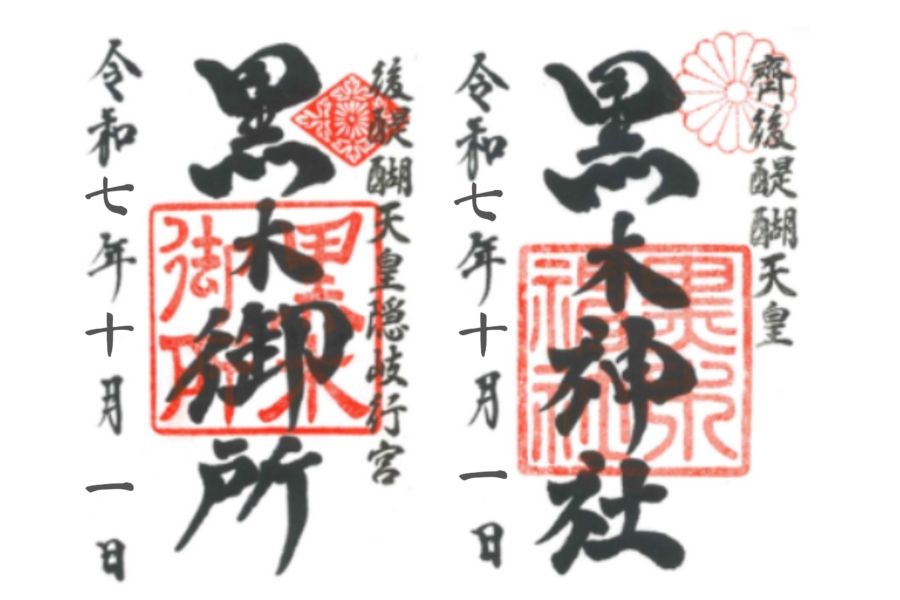 齊後醍醐天皇
黒木神社
黒木神社
令和七年十月一日
後醍醐天皇隠岐行宮
黒木御所
黒木御所
令和七年十月一日